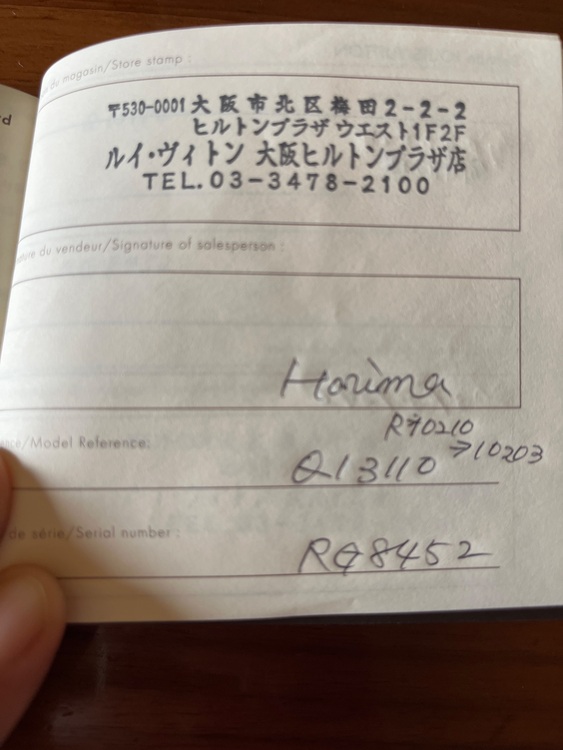 du magasin/Store stamp :
〒530-0001 大阪市北区梅田2-2-2
ヒルトンプラザ ウエスト1F2F
ルイ・ヴィトン 大阪ヒルトンプラザ店
TEL.03-3478-2100
du vendeur/Signature of salesperson :
Horima
10210
/Model Reference:
Q13110 → 10203
de série/Serial number :
RG8452